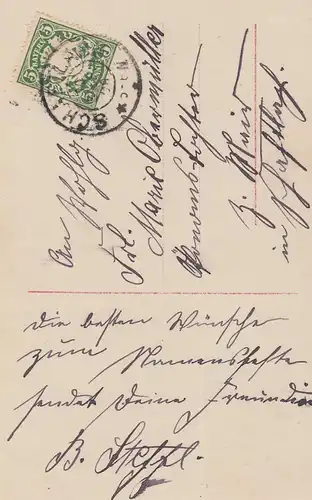 5 BAYERN 5
SCH
Nm.
An Wohlg.
Frl. Marie Obermüller
Ökonomstochter
z. Maier
in Schaftlach
Die besten Wünsche
zum Namensfeste
sendet Deine Freundin
B.